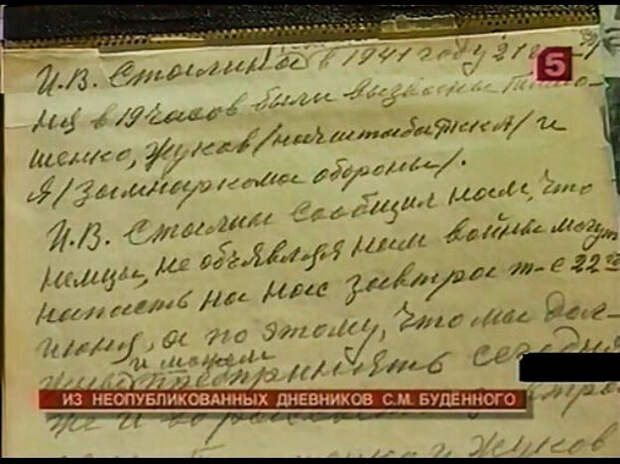 И.В. Сталина в 1941 году 21 июня
ня в 19 часов были вызваны Тимо-
шенко, Жуков /нач. штаба РККА/ и
я /замнаркома обороны/.
И.В. Сталин сообщил нам, что
немцы, не объявляя нам войны могут
напасть на нас завтра т-е 22го
июня, а по этому, что мы дол-
и можем
жны предпринять сегодня
же и до рассвета
и Жуков
5
ИЗ НЕОПУБЛИКОВАННЫХ ДНЕВНИКОВ С.М. БУДЁННОГО